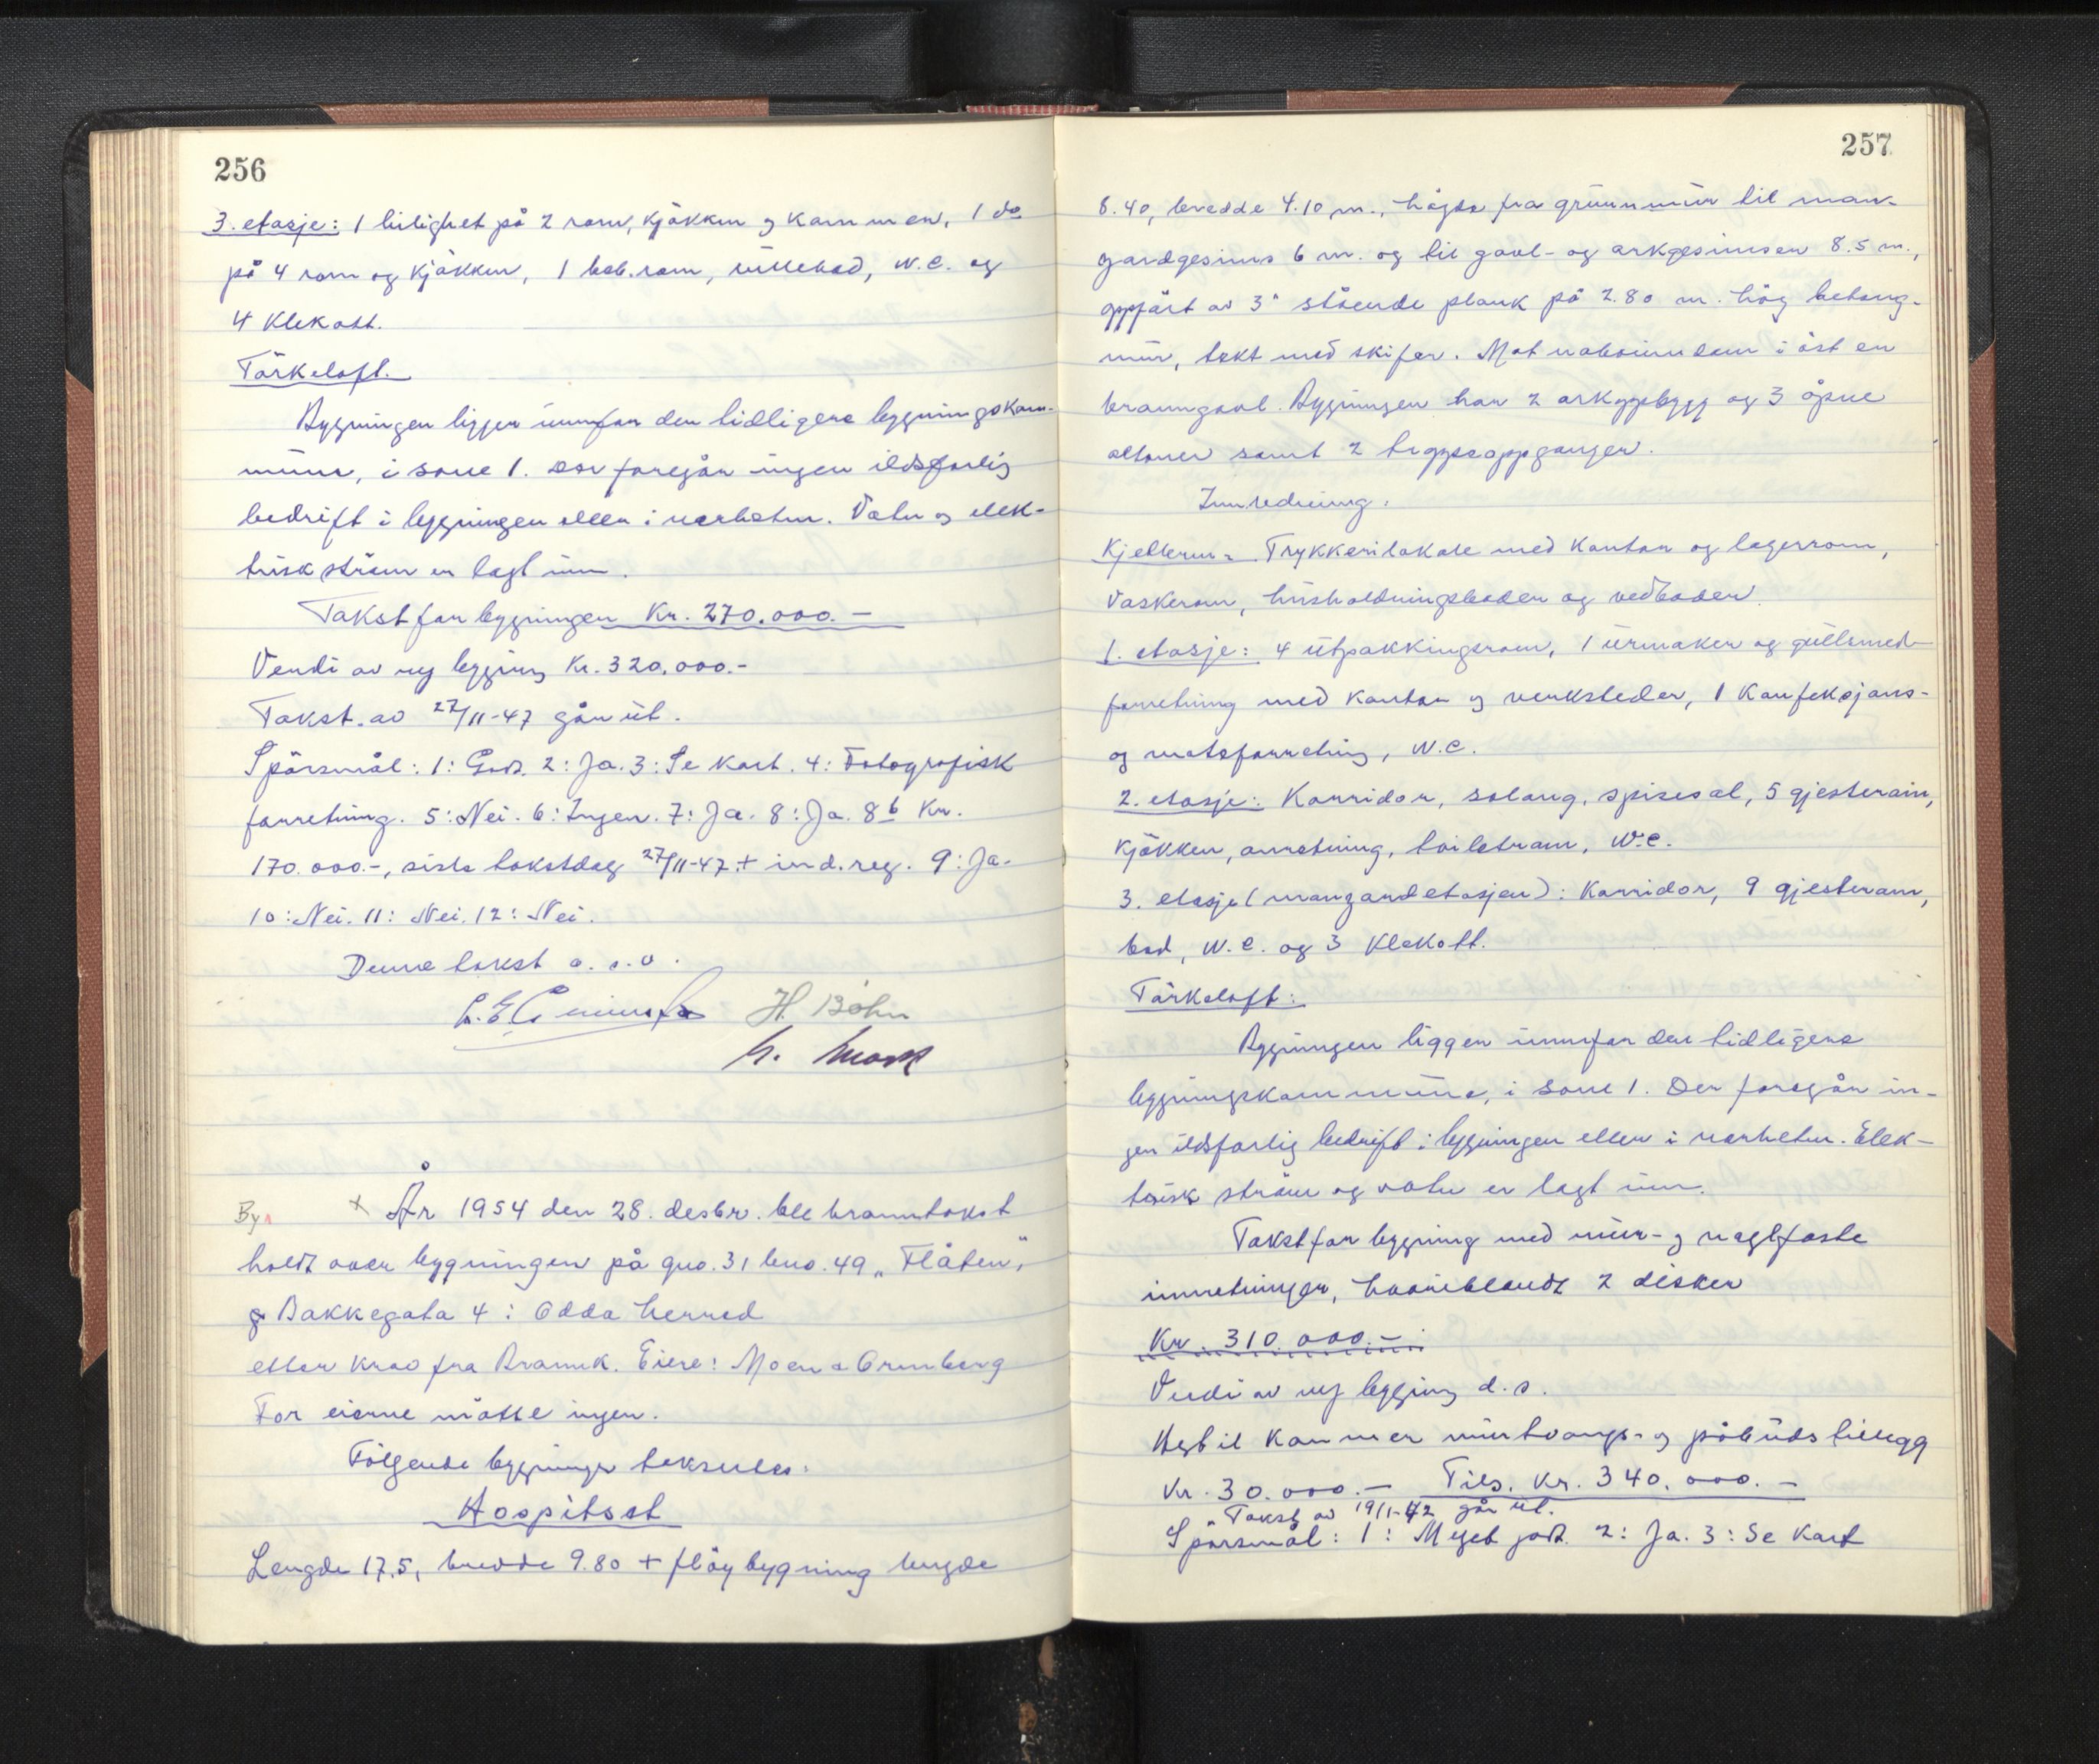 256
3. etasje: 1 leilighet på 2 rom, kjökken og kammer, 1 do
på 4 rom og kjökken, 1 bad.rom, rullebod, W.C. og
4 klekott.
Törkeloft.
Bygningen ligger innafor den tidligere bygningskom-
mune, i sone 1. Der foregår ingen ildsfarlig
bedrift i bygningen eller i nærheten. Vatn og elek-
trisk ström er lagt inn.
Takst for bygningen Kr. 270.000.-
Verdi av ny bygging Kr. 320.000.-
Takst av 27/11-47 går ut.
Spörsmål: 1: God. 2: Ja. 3: Se kart. 4: Fotografisk
forretning. 5: Nei. 6: Ingen. 7: Ja. 8: Ja. 8b Kr.
170.000.-, siste takstdag 27/11-47 + ind. reg. 9: Ja.
10: Nei. 11: Nei. 12: Nei.
Denne takst o.s.v.
H. Böhn
By
+ År 1954 den 28. desbr. ble branntakst
holdt over bygningen på gno. 31 bno. 49 „Flåten",
Bakkegata 4 i Odda herred
etter krav fra Brannk. Eiere: Moen & Ormberg
For eierne måtte ingen.
Fölgende bygninger takseres:
Hospitset
Lengde 17.5, bredde 9.80 + flöybygning lengde
257
8.40, bredde 4.10 m., högde fra grunnmur til man-
gardgesims 6 m. og til gavl- og arkgesimsen 8.5 m.,
oppfört av 3" stående plank på 2.80 m. hög betong-
mur, tekt med skifer. Mot naboeiendom i öst en
branngavl. Bygningen har 2 arkoppbygg og 3 åpne
altaner samt 2 trappeoppganger.
Innredning.
Kjelleren: Trykkerilokale med kontor og lagerrom,
vaskerom, husholdningsboder og vedboder.
1. etasje: 4 utpakkingsrom, 1 urmaker og gullsmed-
forretning med kontor og verksteder, 1 konfeksjons-
og moteforretning, W.C.
2. etasje: Korridor, salong, spisesal, 5 gjesterom,
kjökken, anretning, toiletrom, W.C.
3. etasje (mangardetasjen): Korridor, 9 gjesterom,
bad, W.C. og 3 klekott.
Törkeloft:
Bygningen ligger innafor den tidligere
bygningskommune, i sone 1. Der foregår in-
gen ildsfarlig bedrift i bygningen eller i nærheten. Elek-
trisk ström og vatn er lagt inn.
Takst for bygning med mur- og naglfaste
innretninger, hvoriblandt 2 disker
Kr. 310.000.-
Verdi av ny bygging d.s.
Hertil kommer murtvangs- og påbudstillegg
Kr. 30.000.- Tils. kr. 340.000.-
Takst av 19/1-42 går ut.
Spörsmål: 1: Meget god. 2: Ja. 3: Se kart